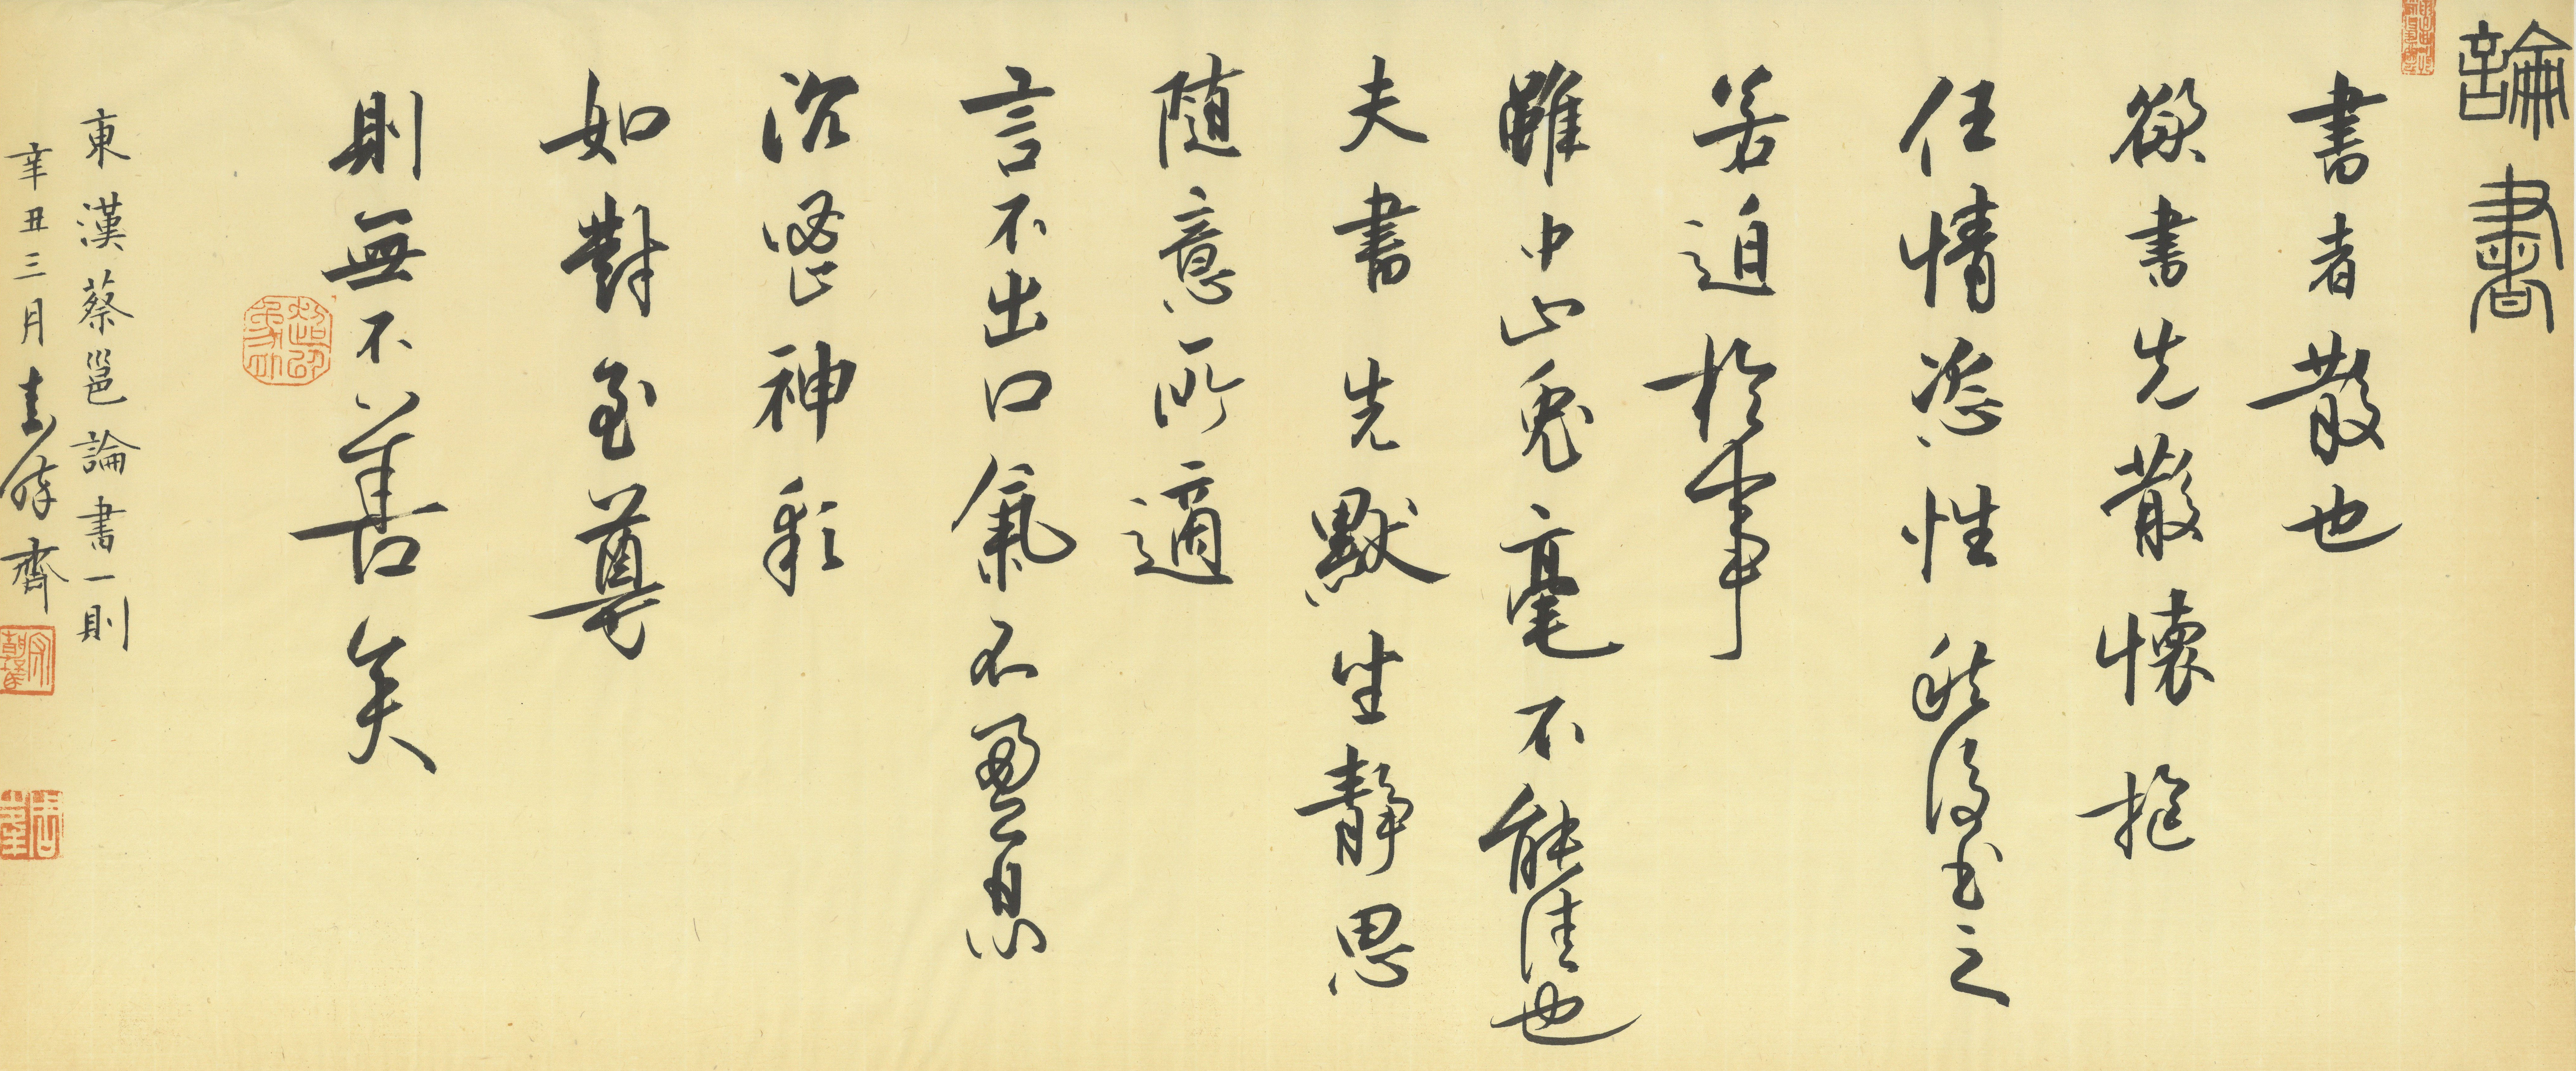 論書
書者散也
欲書先散懷抱
任情恣性然後書之
若迫於事
雖中山兔毫不能佳也
夫書先默坐靜思
隨意所適
言不出口氣不盈息
沉密神彩
如對至尊
則無不善矣
東漢蔡邕論書一則
辛丑三月
齋